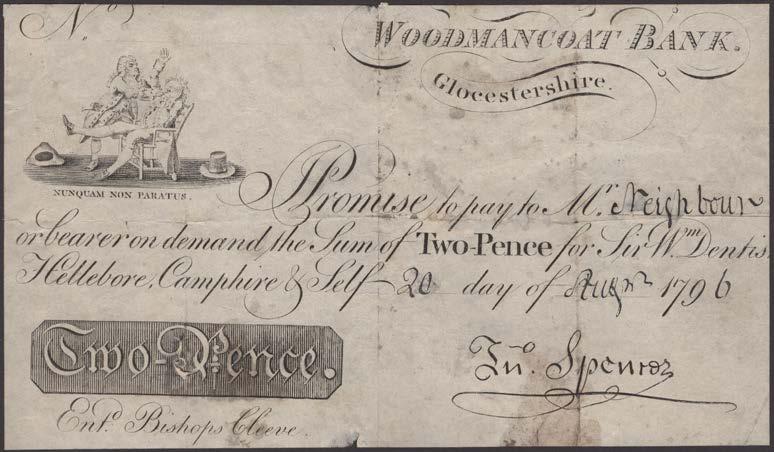 Nº
WOODMANCOAT BANK.
Glocestershire.
NUNQUAM NON PARATUS.
I Promise to pay to Mr. Neighbour
or bearer on demand, the Sum of Two-Pence for Sir Wm. Dentis,
Hellebore, Camphire & Self 20 day of 1796
Two-Pence.
Jnº. Spencer
Entd. Bishops Cleeve.